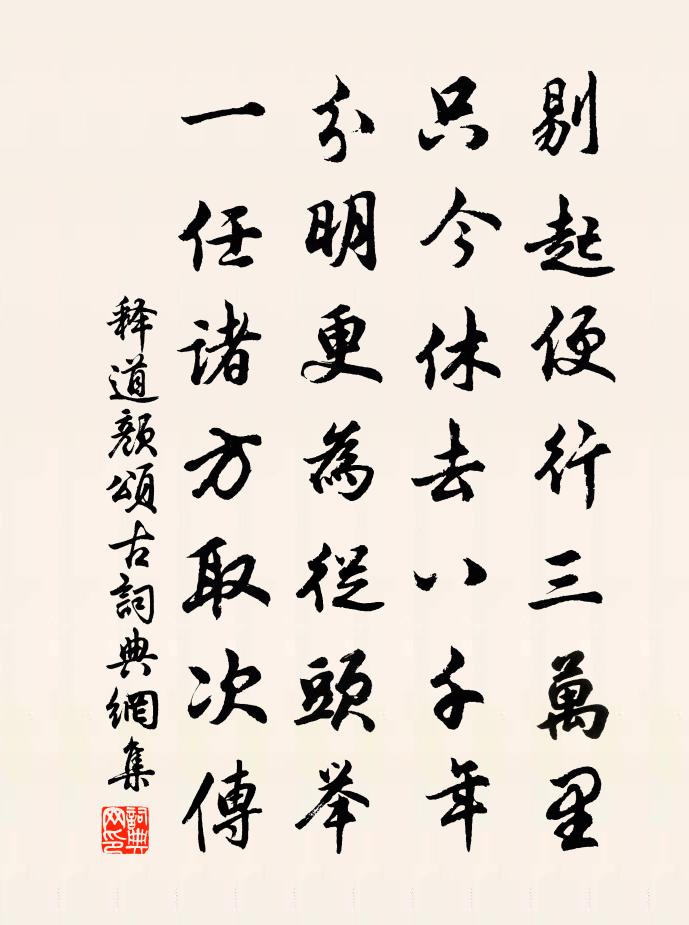 剔起便行三萬里
只今休去八千年
分明更為從頭举
一任诸方取次傳
释道颜頌古詞典網集
詞典網印